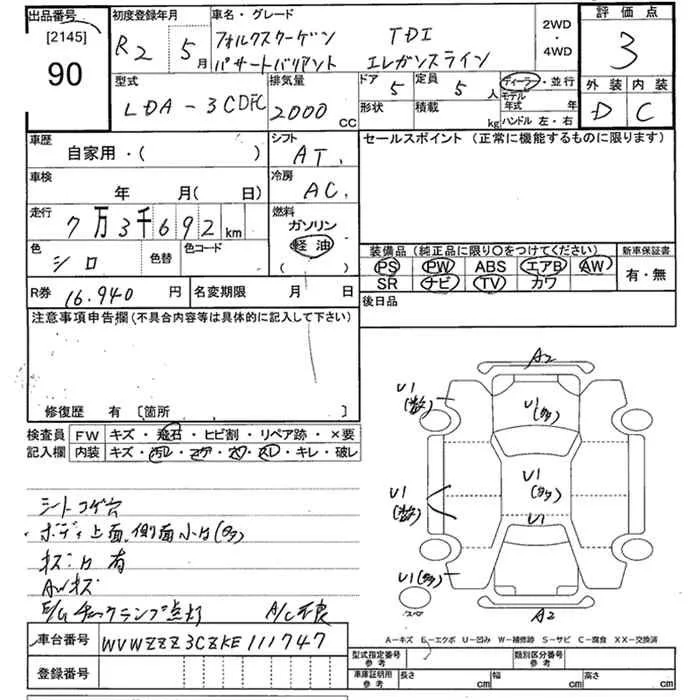 出品番号
[2145]
90
初度登録年月
R2 5月
車名・グレード
フォルクスワーゲン TDI
パサートバリアント エレガンスライン
2WD
・
4WD
評価点
3
外装 内装
D C
型式
LDA-3CDFC
排気量
2000 CC
ドア 5
定員 5 人
形状
積載 kg
ディーラー・並行
モデル年式 年
ハンドル 左・右
車歴
自家用・( )
シフト
AT.
セールスポイント (正常に機能するものに限ります)
車検
年 月( 日)
冷房
AC.
走行
7万3千692 km
燃料
ガソリン
軽油
( )
色
シロ
色替
色コード
装備品 (純正品に限り〇をつけてください)
新車保証書
PS PW ABS エアB AW
SR ナビ TV カワ
有・無
R券 16.940 円
名変期限 月 日
後日品
注意事項申告欄 (不具合内容等は具体的に記入して下さい)
修復歴 有 [箇所 ]
検査員
記入欄
FW キズ・飛石・ヒビ割・リペア跡・×要
内装 キズ・汚レ・コゲ・穴・スレ・キレ・破レ
シートコゲ穴
・ボディ上面、側面小凹(多)
キズ凹有
AWキズ
E/Gチェックランプ点灯 A/C不良
A2
U1
(多)
U1
(多)
U1
U1
U1
U1(多)
A2
A-キズ E-エクボ U-凹み W-補修跡 S-サビ C-腐食 XX-交換済
車台番号 WVWZZZ3CZKE111747
登録番号
型式指定番号
参考
類別区分番号
参考
車庫証明用
参考
長さ cm 幅 cm 高さ cm